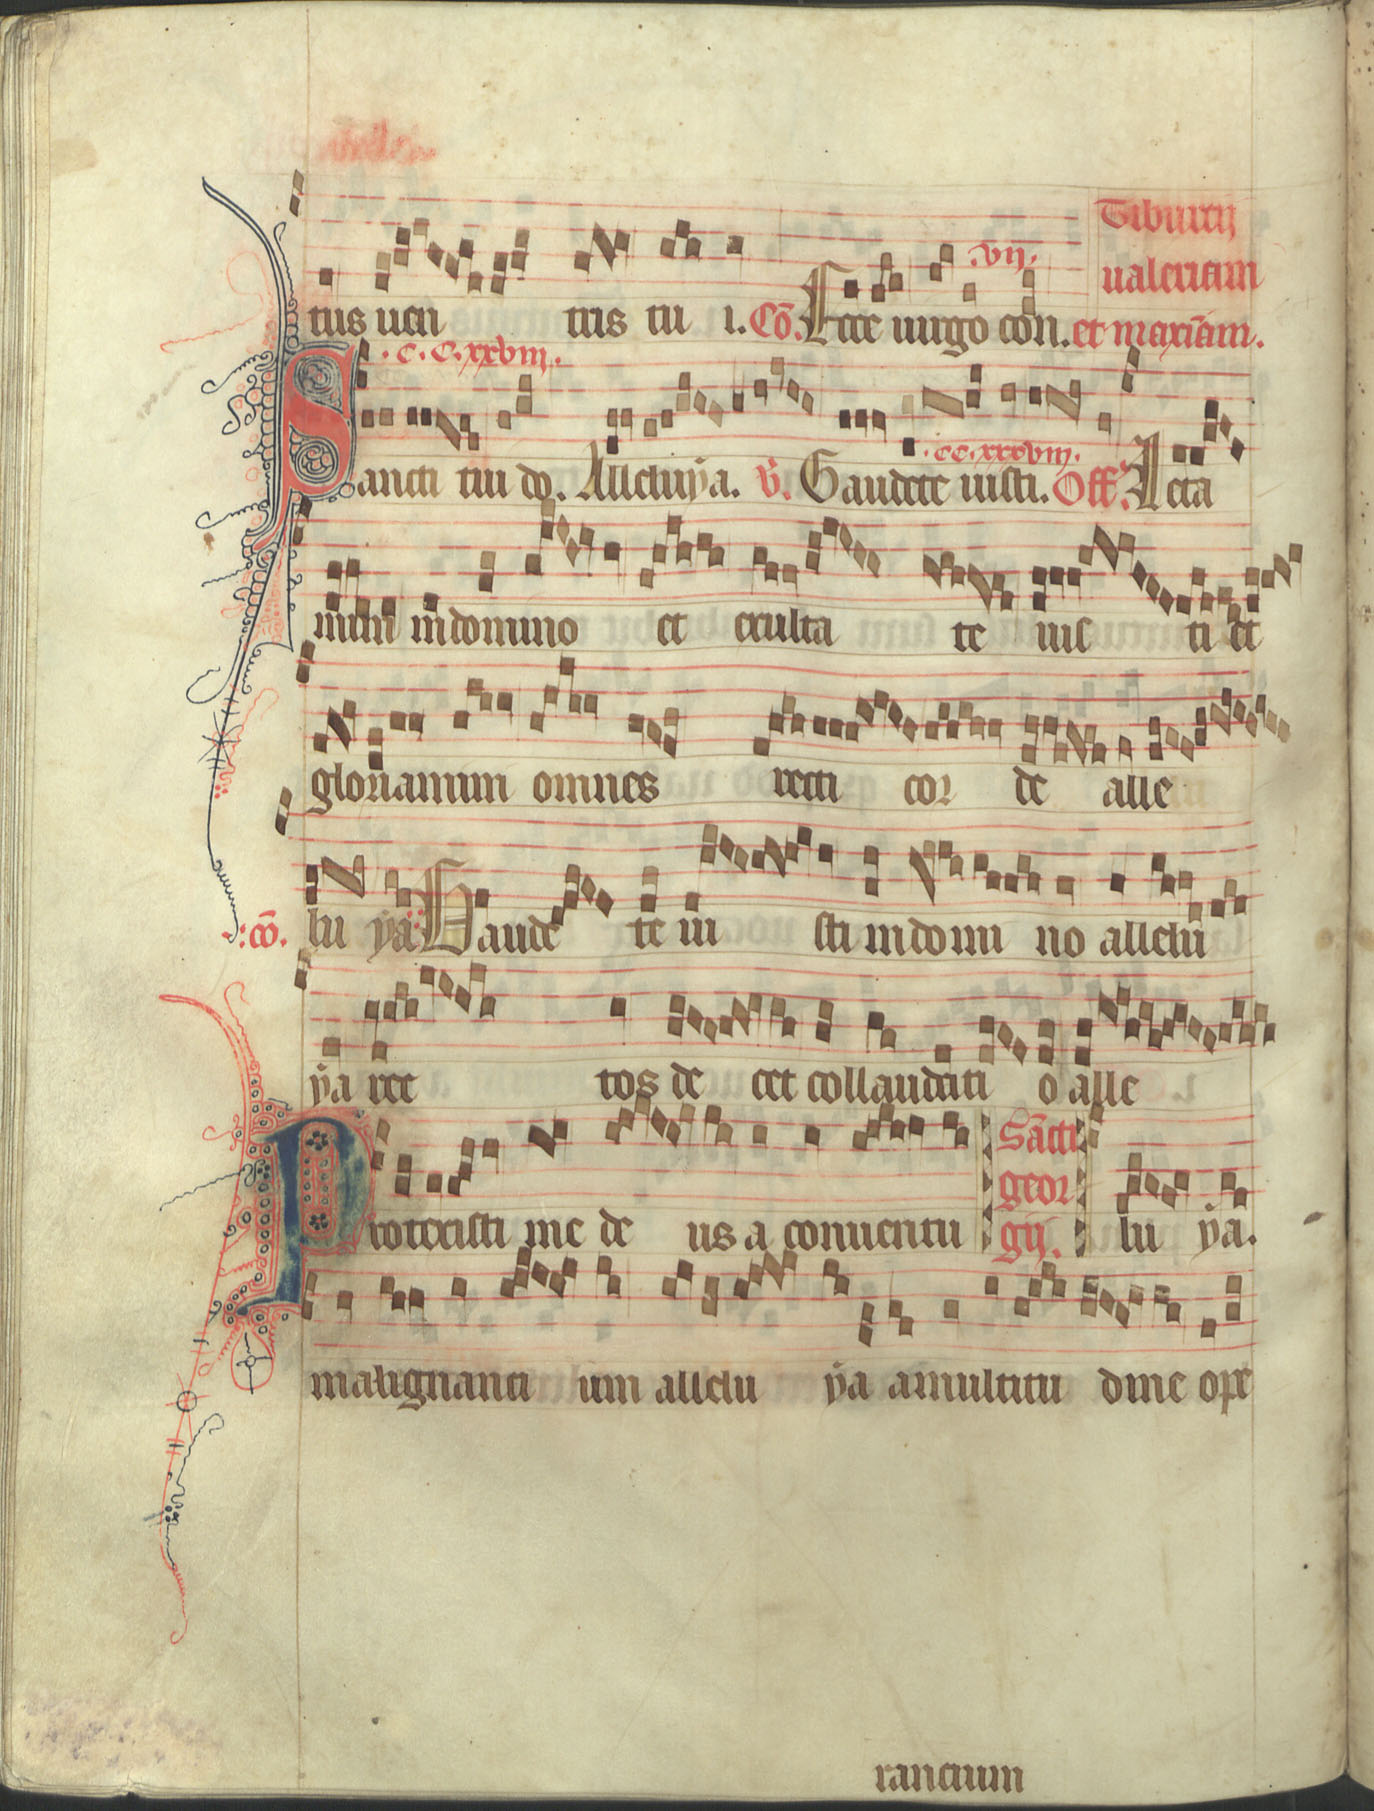 Tiburtij
ualeriani
tus uen tris tu i. Cō. Ecce uirgo con. .vij. et maxiām.
.c.c.xxviij.
Sancti tui do. Alleluya. V. Gaudete iusti. .cc.xxxviij. Off. Leta
mini in domino et exulta te ius ti et
gloriamini omnes recti cor de alle
lu ya :cō. Gaude te iu sti in domi no allelu
ya rec tos de cet collaudati o alle
Sācti
geor
Protexisti me de us a conuentu gij. lu ya.
malignanti um allelu ya a multitu dine ope
rancium